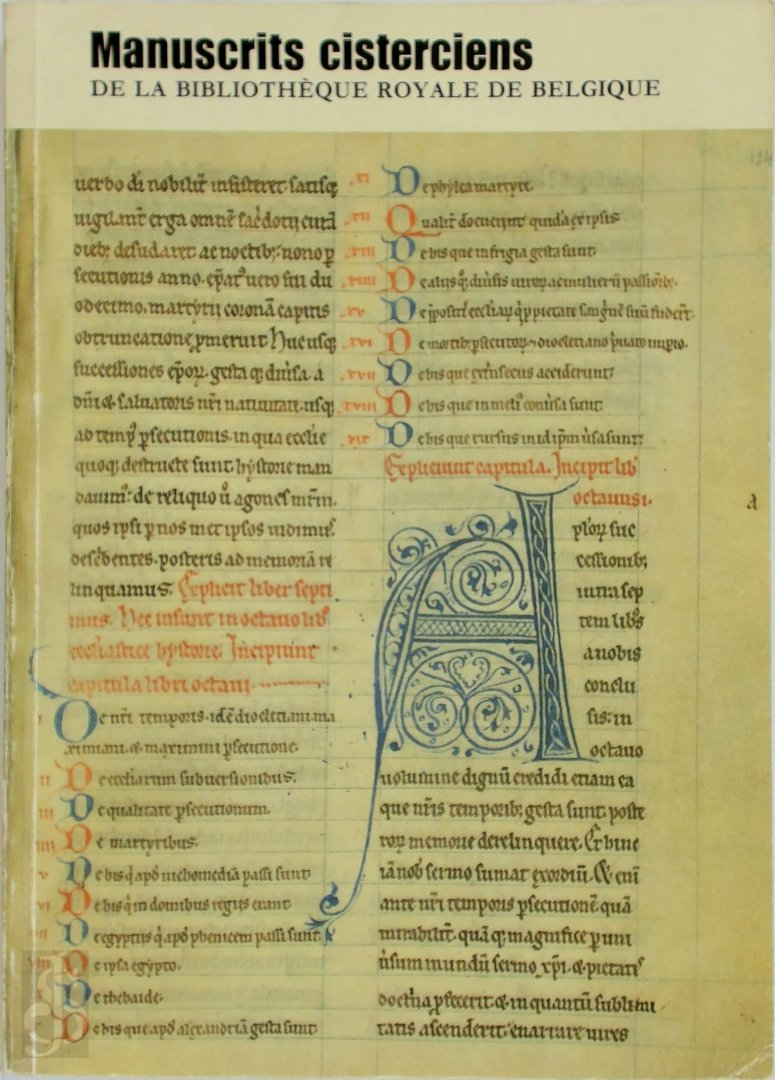 Manuscrits cisterciens
DE LA BIBLIOTHÈQUE ROYALE DE BELGIQUE
uerbo dī nobilit̄ insisteret satisq;
uigilant̄ erga omnē sac̄dotij curā
dieb; desudaret ac noctib;. nono ꝑ
secutionis anno. ep̄at; uero sui du
odecimo. martyrij coronā capitis
obtruncatione ꝓmeruit. Hucusq;
successiones ep̄oꝝ. gesta q; diuīsa. a
dn̄i & saluatoris nr̄i natiuitate. usq;
ad temp; ꝑsecutionis. in qua ecclīe
quoq; destructe sunt. hystorie man
dauim;. de reliquo ū agones mr̄m.
quos ipsi ꝑ nos met ipsos uidimus.
desc̄bentes. posteris ad memoriā re
linquamus. Explicit liber septi
mus. Hec insunt in octauo lib̄
eccl̄iastice hystorie. Incipiunt
capitula libri octaui
i De nr̄i temporis. idē dioclecianī ma
ximiani. & maximini ꝑsecutione.
ii De eccl̄iarum subuersionibus.
iii De qualitate ꝑsecutionum.
iiii De martyribus.
v De his q̄ apd̄ nichomediā passi sunt
vi De his q̄ in domibus regijs erant
vii De egyptijs q̄ apd̄ phenicem passi sunt.
viii De ipsa egypto.
De thebaide.
De his que apd̄ alexandriā gesta sunt
xi De phylea martyre.
xii Qualit̄ docuerint quidā ex ipsis
xiii De his que in frigia gesta sunt
xiiii De alijs q; diuīsis uiroꝝ ac mulierū passioīb;.
xv De ꝓpositī eccl̄iaꝝ q̄ ꝓ pietate sanguē suū fuder̄t.
xvi De mortib; ꝑsecutoꝝ
xvii De his que extrīsecus acciderunt
xviii De his que in meli; conuīsa sunt
xix De his que rursus in idip̄m uīsa sunt
Expliciunt capitula. Incipit lib̄
octauus i.
Aploꝝ suc
cessionib;
iuxta sep
tem lib̄s
a nobis
conclu
sis: in
octauo
uolumine dignū credidi etiam ea
que nr̄is temporib; gesta sunt. poste
roꝝ memorie derelinquere. Et hinc
iā nob̄ sermo sumat exordiū. & enī
ante nr̄i temporis ꝑsecutionē quā
mirabilit̄. quā q; magnifice ꝑ uni
ūsum mundū sermo xp̄i. & pietatis
doct̄na ꝓfecerit & in quantū sublimi
tatis ascenderit. enarrare uires
a